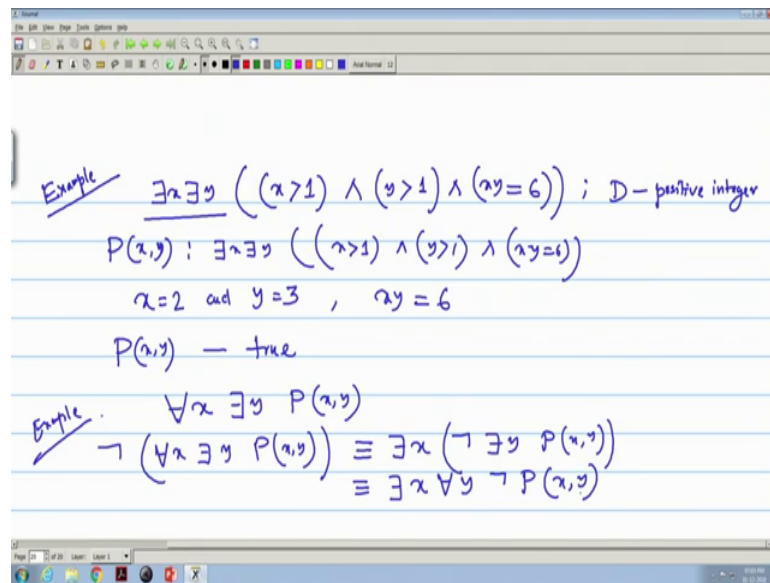 Journal
File Edit View Page Tools Options Help
Arial Normal 12
Example ∃x∃y ((x>1) ∧ (y>1) ∧ (xy=6)) ; D – positive integer
P(x,y) : ∃x∃y ((x>1) ∧ (y>1) ∧ (xy=6))
x=2 and y=3 , xy = 6
P(x,y) — true
Example . ∀x ∃y P(x,y)
¬ (∀x ∃y P(x,y)) ≡ ∃x (¬ ∃y P(x,y))
≡ ∃x ∀y ¬ P(x,y)
Page 20 of 20 Layer: Layer 1